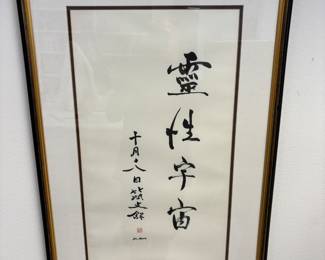 靈性宇宙
十月十八日